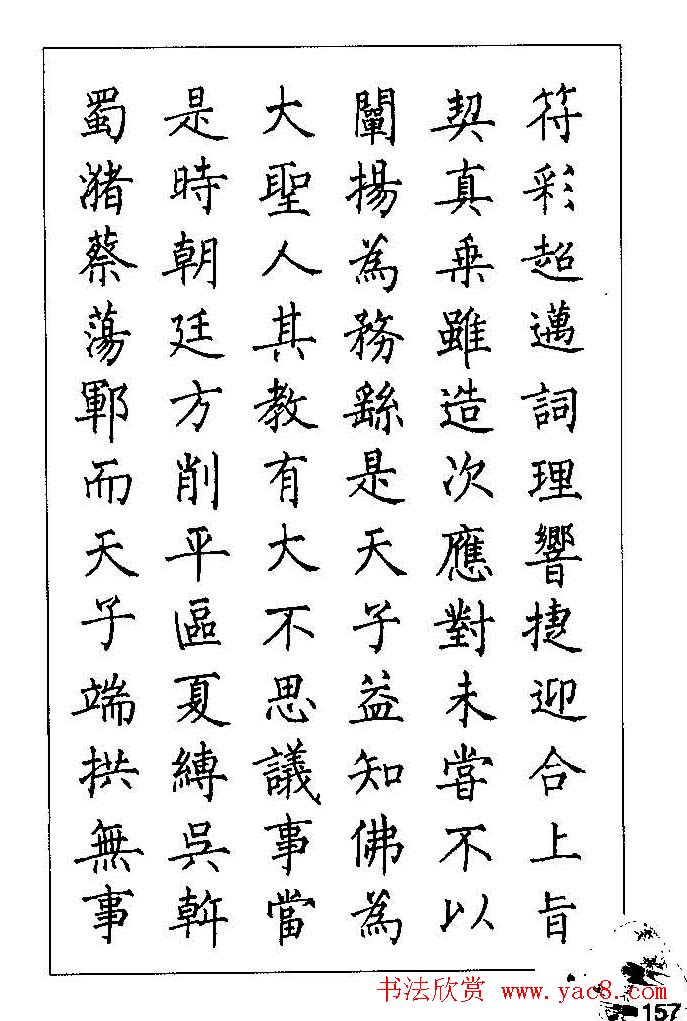 符彩超邁詞理響捷迎合上旨
契真乘雖造次應對未嘗不以
闡揚為務繇是天子益知佛為
大聖人其教有大不思議事當
是時朝廷方削平區夏縛吳斡
蜀潴蔡蕩鄆而天子端拱無事
书法欣赏 www.yac8.com
157